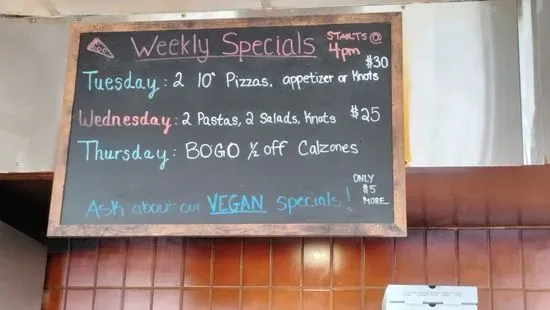 Weekly Specials STARTS @
4pm
$30
Tuesday: 2 10" Pizzas, appetizer or Knots
Wednesday: 2 Pastas, 2 Salads, Knots $25
Thursday: BOGO ½ off Calzones
ONLY
$5
MORE...
Ask about our VEGAN Specials!